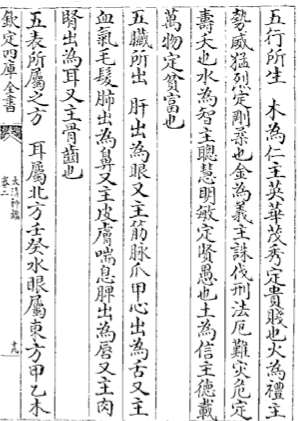 五行所生　木為仁主英華茂秀定貴賤也火為禮主
勢威猛烈定剛柔也金為義主誅伐刑法厄難災危定
壽夭也水為智主聰慧明敏定賢愚也土為信主德載
萬物定貧富也
五臟所出　肝出為眼又主筋脉爪甲心出為舌又主
血氣毛髮肺出為鼻又主皮膚喘息脾出為唇又主肉
腎出為耳又主骨齒也
五表所屬之方　耳屬北方壬癸水眼屬東方甲乙木
欽定四庫全書
太清神鑑
卷二
十九